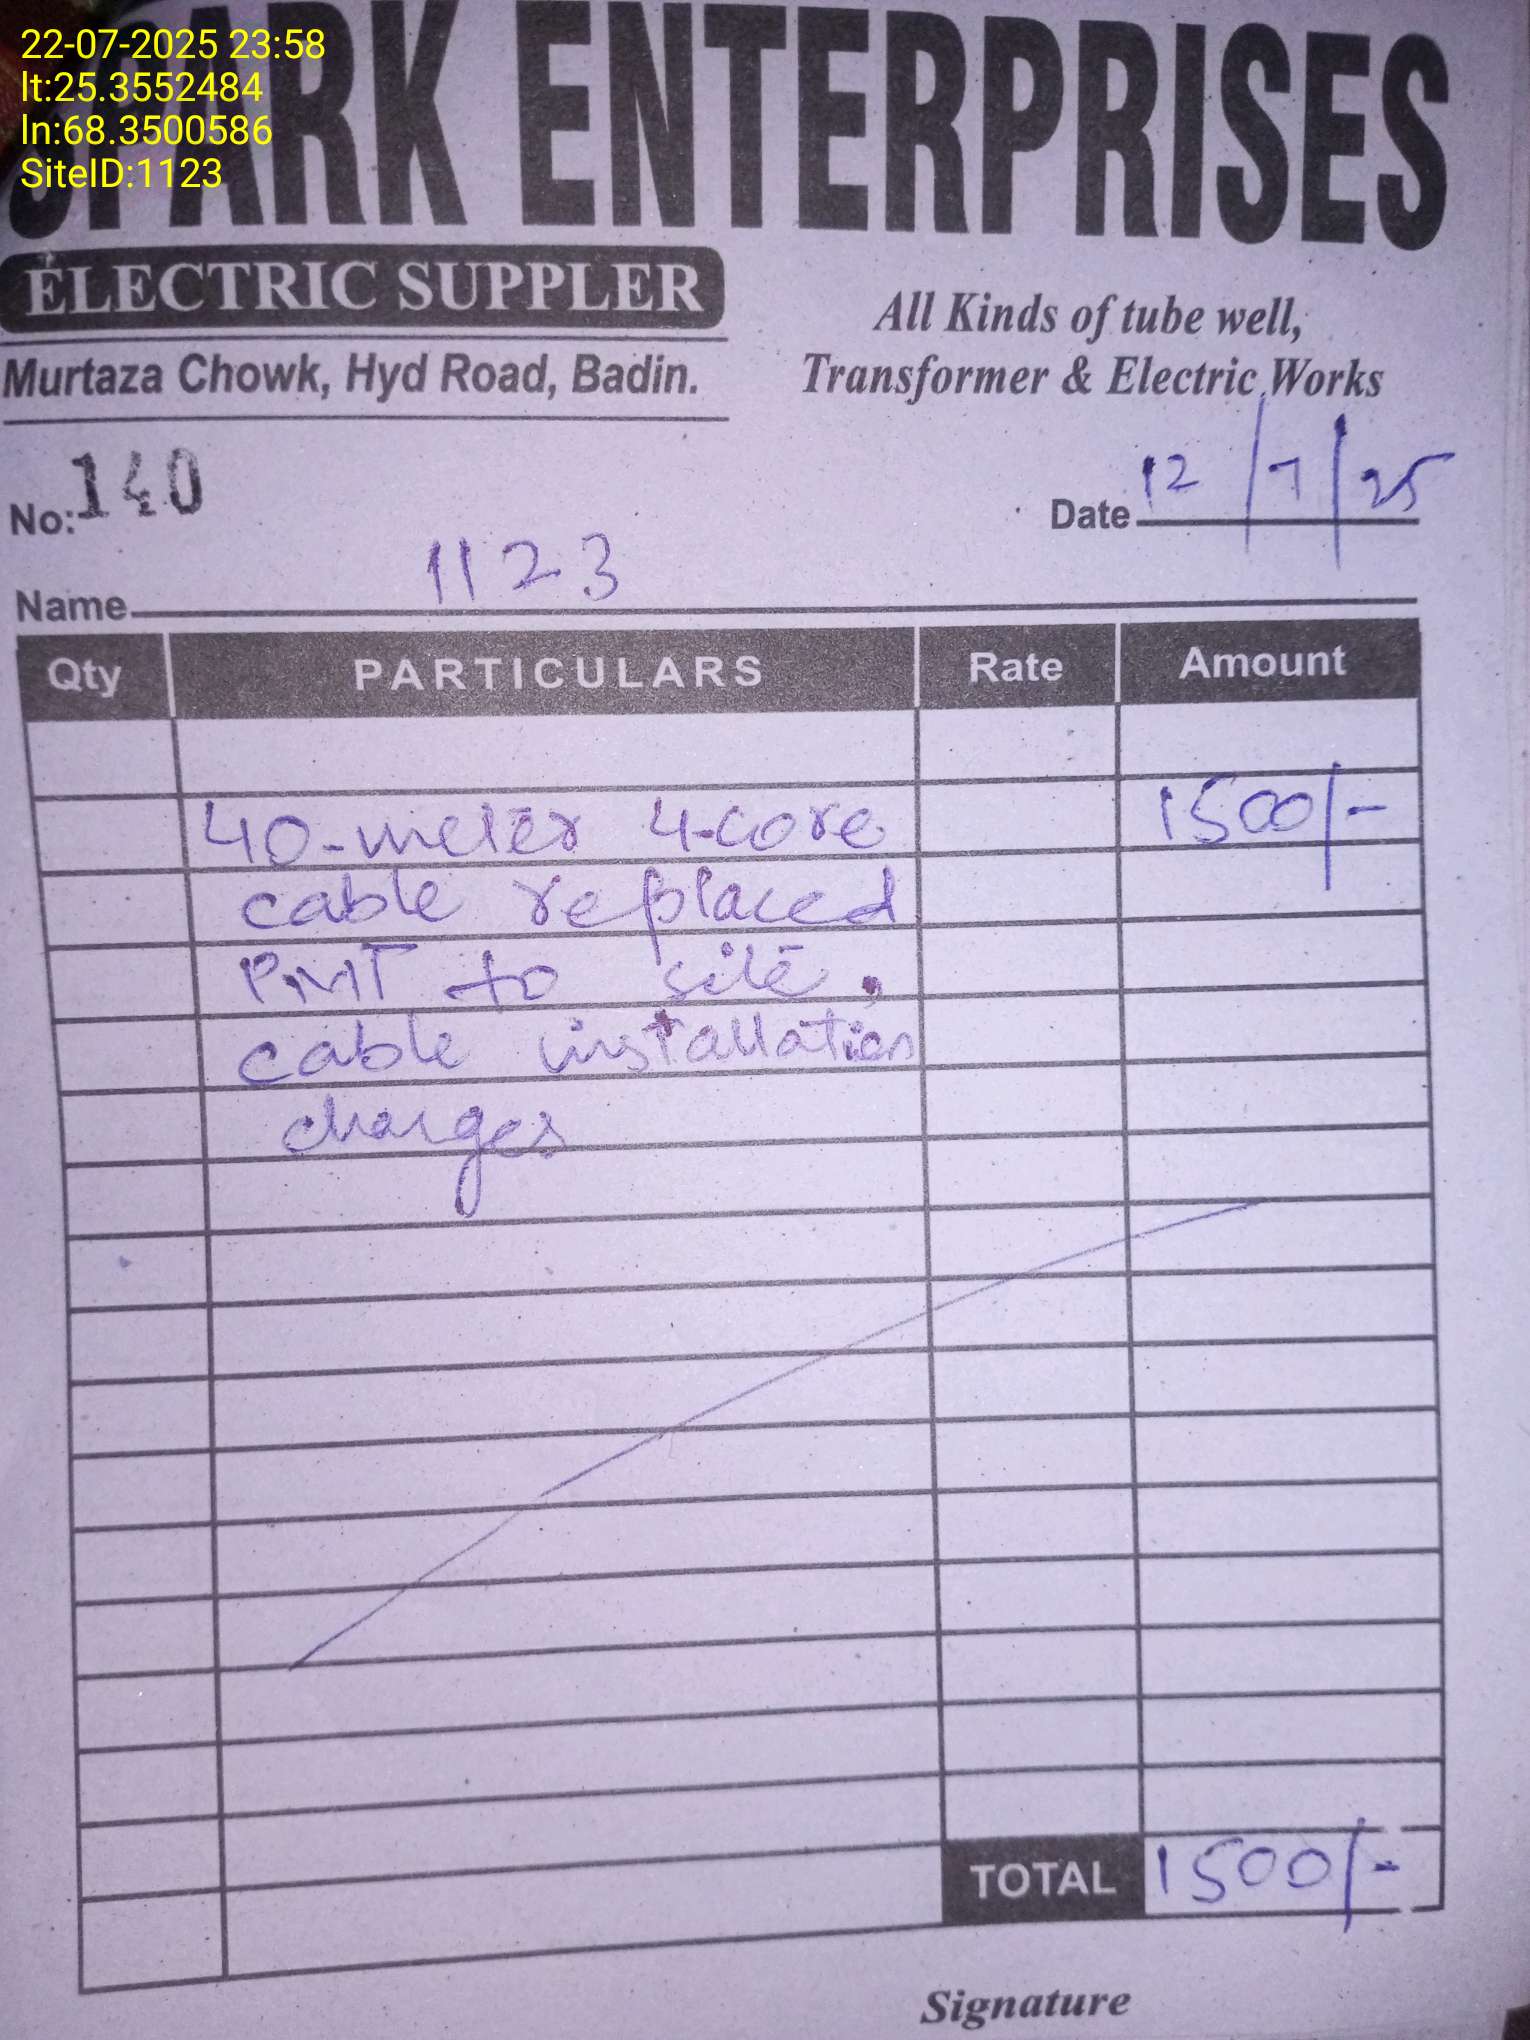 22-07-2025 23:58
lt:25.3552484
ln:68.3500586
SiteID:1123
SPARK ENTERPRISES
ELECTRIC SUPPLER
Murtaza Chowk, Hyd Road, Badin.
All Kinds of tube well,
Transformer & Electric Works
No: 140
Date 12/7/25
Name 1123
Qty PARTICULARS Rate Amount
40-meter 4-core 1500/-
cable replaced
PMT to site,
cable installation
charges
TOTAL 1500/-
Signature